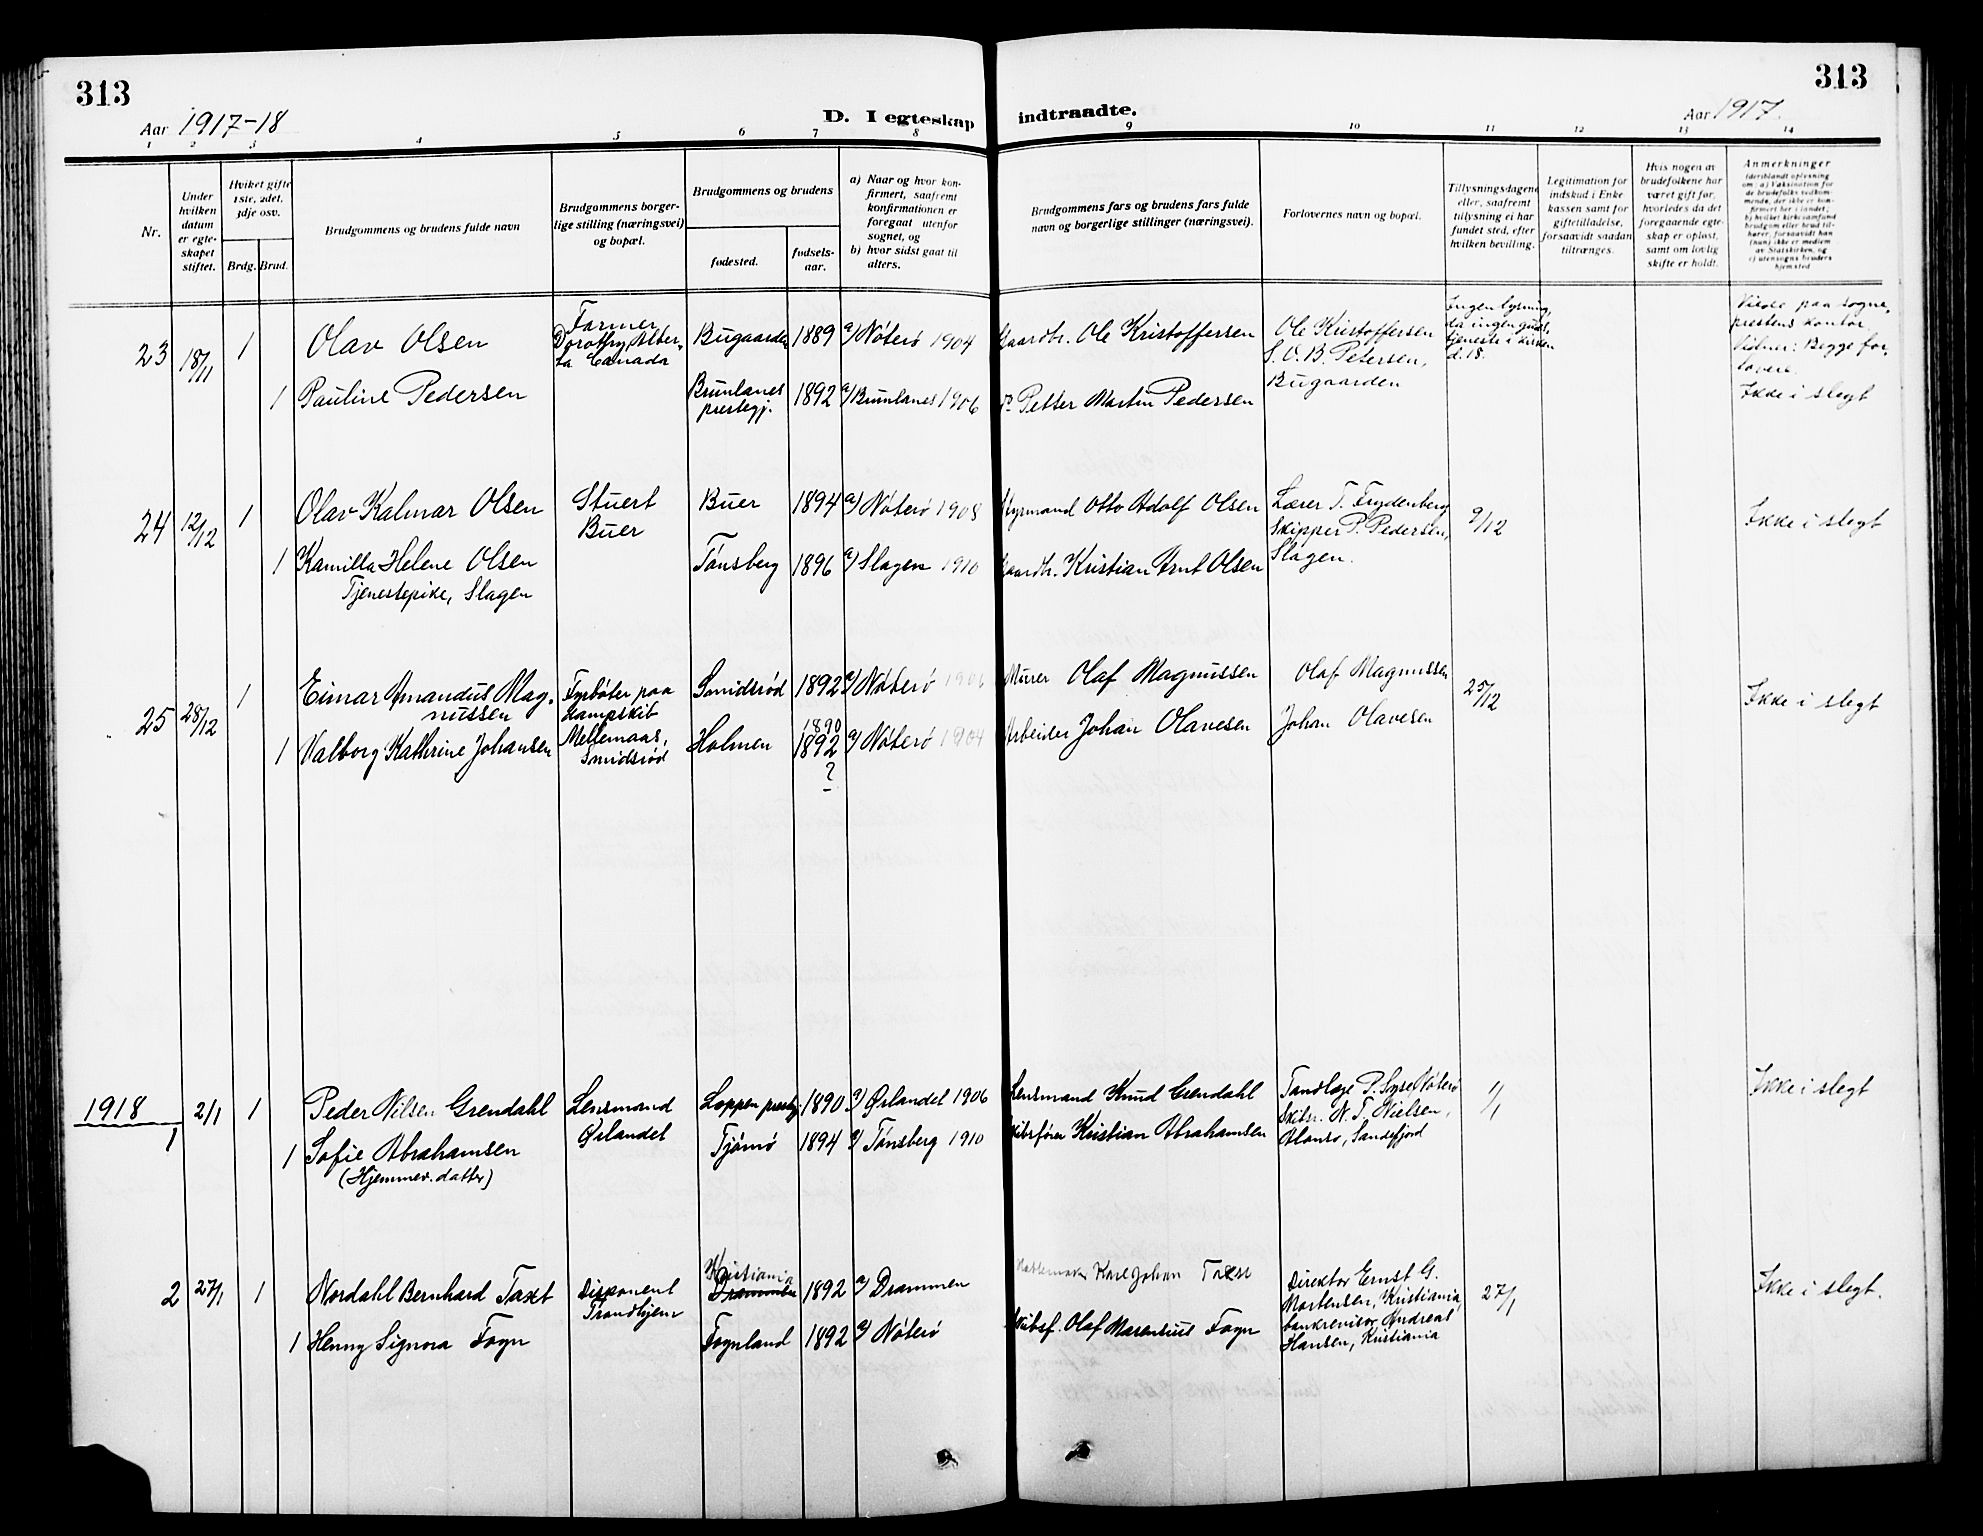 313
313
Aar 1917-18
D. I egteskap indtraadte.
Aar 1917.
1 2 3 4 5 6 7 8 9 10 11 12 13 14
Nr.
Under hvilken datum er egteskapet stiftet.
Hviket gifte 1ste, 2det, 3dje osv.
Brdg. Brud.
Brudgommens og brudens fulde navn
Brudgommens borgerlige stilling (næringsvei) og bopæl.
Brudgommens og brudens
fødested.
fødselsaar.
a) Naar og hvor konfirmert, saafremt konfirmationen er foregaat utenfor sognet, og
b) hvor sidst gaat til alters.
Brudgommens fars og brudens fars fulde navn og borgerlige stillinger (næringsvei).
Forlovernes navn og bopæl.
Tillysningsdagene eller, saafremt tillysning ei har fundet sted, efter hvilken bevilling.
Legitimation for indskud i Enkekassen samt for giftetilladelse, forsaavidt saadan tiltrænges.
Hvis nogen av brudefolkene har været gift før, hvorledes da det foregaaende egteskap er opløst, samt om lovlig skifte er holdt.
Anmerkninger
23 18/11 1 Olav Olsen
Farmer
Dorothy, Alberta Canada
Bugaarden 1889 a) Nøterø 1904
Gaardbr. Ole Kristoffersen
Ole Kristoffersen
S. O. B. Petersen,
Bugaarden
Ingen lysning,
da ingen gudstjeneste i kirken
d. 18.
Viede paa sogneprestens kontor.
Vidner: Begge forlovere.
Ikke i slegt
1 Pauline Pedersen
Brunlanes prestegj. 1892 a) Brunlanes 1906
Petter Martin Pedersen
24 12/12 1 Olav Kalmar Olsen
Stuert
Buer
Buer 1894 a) Nøterø 1908
Styrmand Otto Adolf Olsen
Lærer T. Frydenberg
Skipper P. Pedersen,
Slagen.
9/12
Ikke i slegt
1 Kamilla Helene Olsen
Tjenestepike, Slagen
Tønsberg 1896 a) Slagen 1910
Gaardbr. Kristian Arnt Olsen
25 28/12 1 Eimar Amandus Magnussen
Fyrbøter paa
dampskib
Mellemaas,
Smidsrød
Smidsrød 1892 a) Nøterø 1906
Murer Olaf Magnussen
Olaf Magnussen
Johan Olavesen
25/12
Ikke i slegt
1 Valborg Kathrine Johansen
Holmen 1890
1892
?
a) Nøterø 1904
Arbeider Johan Olavesen
1918
1 2/1 1 Peder Nilsen Grendahl
Lensmand
Ørlandet
Loppen prestegj. 1890 a) Ørlandet 1906
Lensmand Knud Grendahl
Tandlæge P. Nøterø
Skibsr. N. T. Nielsen,
Alonso, Sandefjord
1/1
Ikke i slegt
1 Sofie Abrahamsen
(Hjemmev. datter)
Tjømø 1894 a) Tønsberg 1910
Skibsfører Kristian Abrahamsen
2 27/1 1 Nordahl Bernhard Taxt
Disponent
Trondhjem
Kristiania
Drammen
1892 a) Drammen
Karl Johan
Direktør Ernst G.
Mortensen, Kristiania,
bankrevisor Andreas
Hansen, Kristiania
27/1
Ikke i slegt.
1 Henny Signora Fogn
Fognland 1892 a) Nøterø
Skibsf. Olaf Marentius Fogn